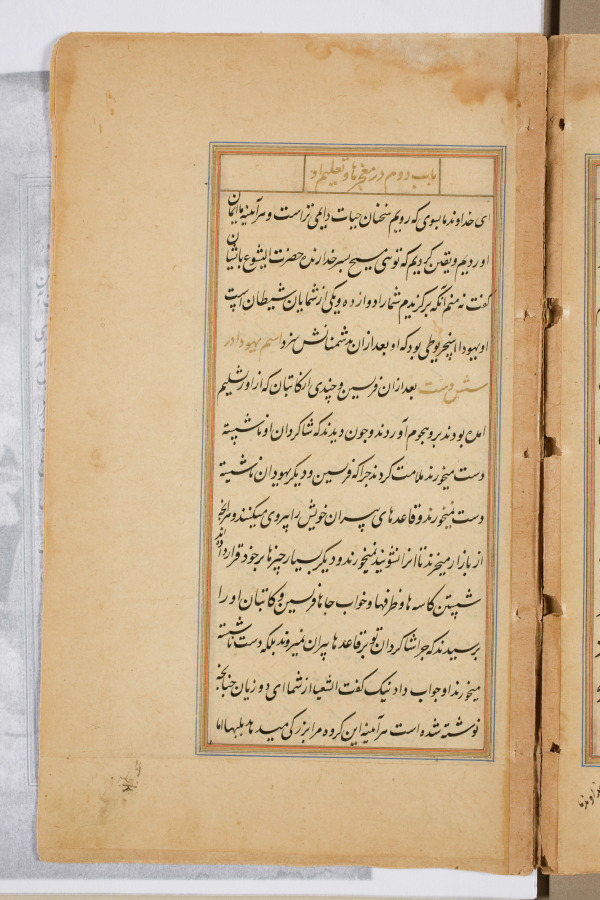 باب دوم در معجزها و تعلیم او
ای خداوند ما بسوی که رویم سخنان حیات دایمی تراست و هر آینه ما ایمان
اوردیم و یقین کردیم که توئی مسیح پسر خدا زنده حضرت ایشوع با ایشان
گفت نه منم آنکه برگزیدم شما را دوازده و یکی از شمایان شیطان است
او یهودا اسخریوطی بود که او بعد ازان بدشمنانش سپرد اسم یهودا در
شستن دست بعد ازان فرسین و چندی از کاتبان که از اورشلیم
امده بودند برو هجوم آوردند و چون دیدند که شاکردان او ناشسته
دست میخورند ملامت کردند چرا که فرسین و دیکر یهودان ناشسته
دست نمیخورند و قاعدهای پیران خویش را پیروی میکنند و هر آنچه
از بازار میخرند تا انرا نشویند نمیخورند و دیکر بسیار چیزها بر خود قرار داده‌اند
شستن کاسه ها و ظرفها و خواب جاها فرسین و کاتبان او را
پرسیدند که چرا شاکردان تو بر قاعدها پیران نمیروند بلکه دست ناشسته
میخورند او جواب داد نیک کفت اشعیا از شما ای دو زبان چنانچه
نوشته شده است هر آینه این کروه مرا بزرکی میدهد بلبها اما